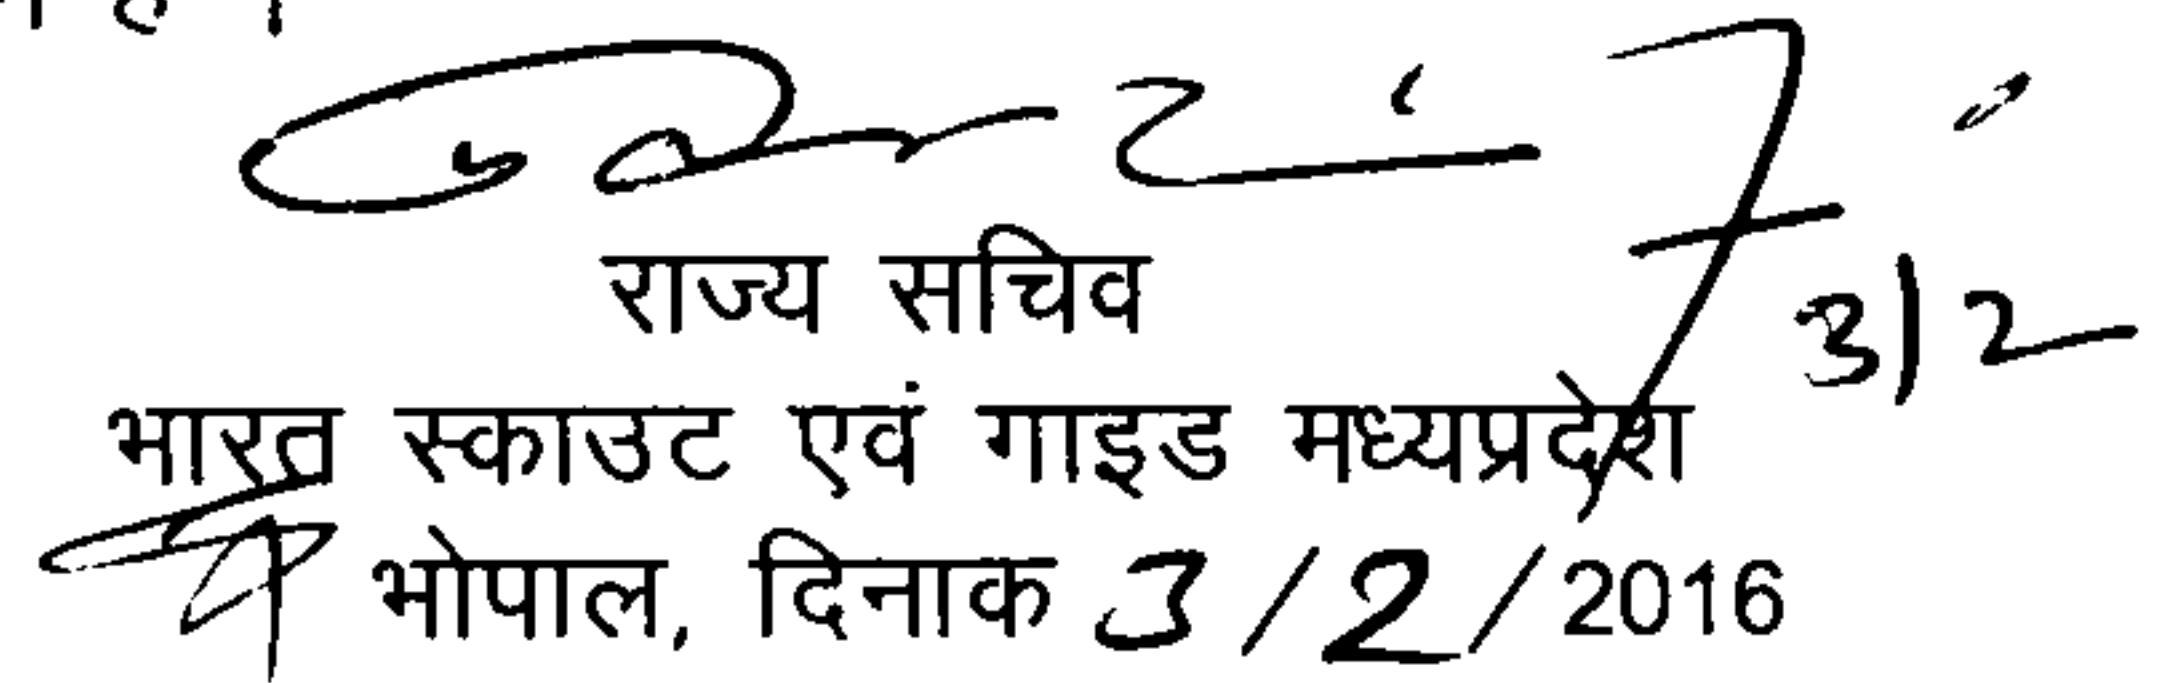 राज्य सचिव
3/2
भारत स्काउट एवं गाइड मध्यप्रदेश
भोपाल, दिनाक 3/2/2016